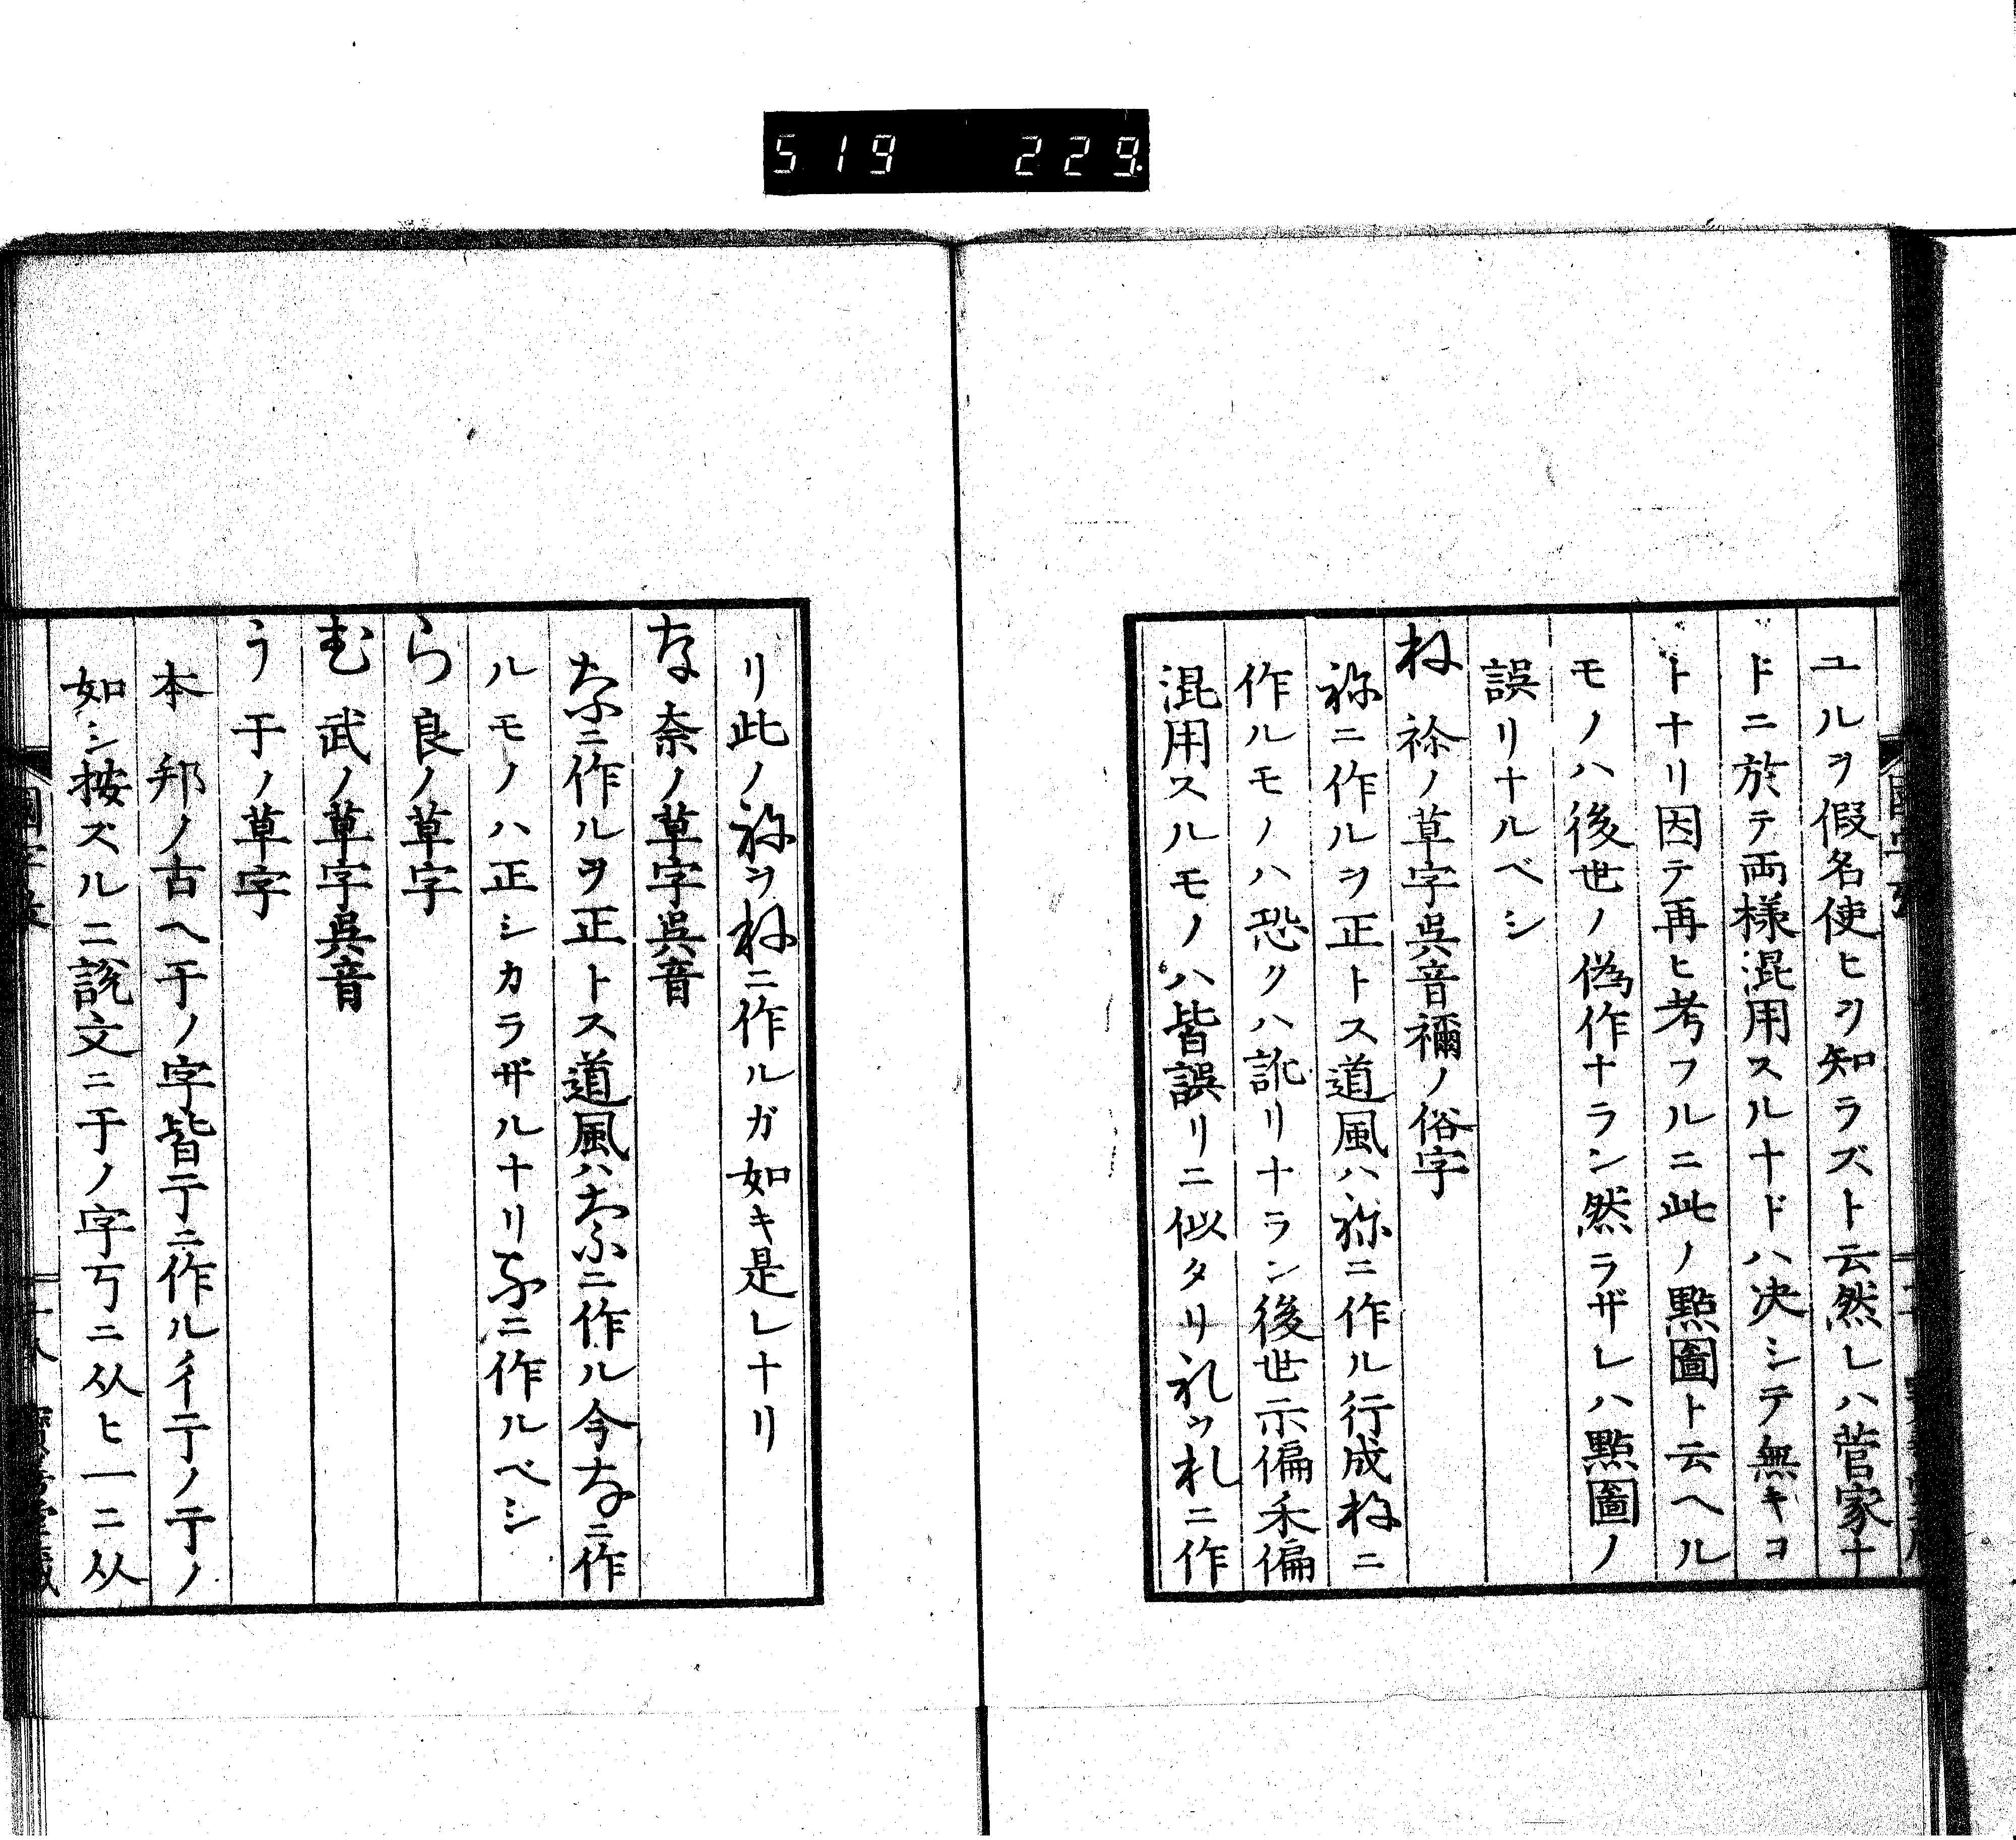 519 229
ユルヲ假名使ヒヲ知ラズト云然レハ菅家ナ
ドニ於テ両様混用スルナドハ决シテ無キコ
トナリ因テ再ヒ考フルニ此ノ㸃圖ト云ヘル
モノハ後世ノ偽作ナラン然ラザレハ㸃圖ノ
誤リナルベシ
ね 祢ノ草字呉音禰ノ俗字
祢ニ作ルヲ正トス道風ハ祢ニ作ル行成ねニ
作ルモノハ恐クハ訛リナラン後世示偏禾偏
混用スルモノハ皆誤リニ似タリ礼ヲ札ニ作
リ此ノ祢ヲねニ作ルガ如キ是レナリ
な 奈ノ草字呉音
なニ作ルヲ正トス道風ハなニ作ル今なニ作
ルモノハ正シカラザルナリなニ作ルベシ
ら 良ノ草字
む 武ノ草字呉音
う 于ノ草字
本邦ノ古ヘ于ノ字皆亍ニ作ル彳亍ノ亍ノ
如シ按ズルニ說文ニ于ノ字丂ニ从ヒ一ニ从